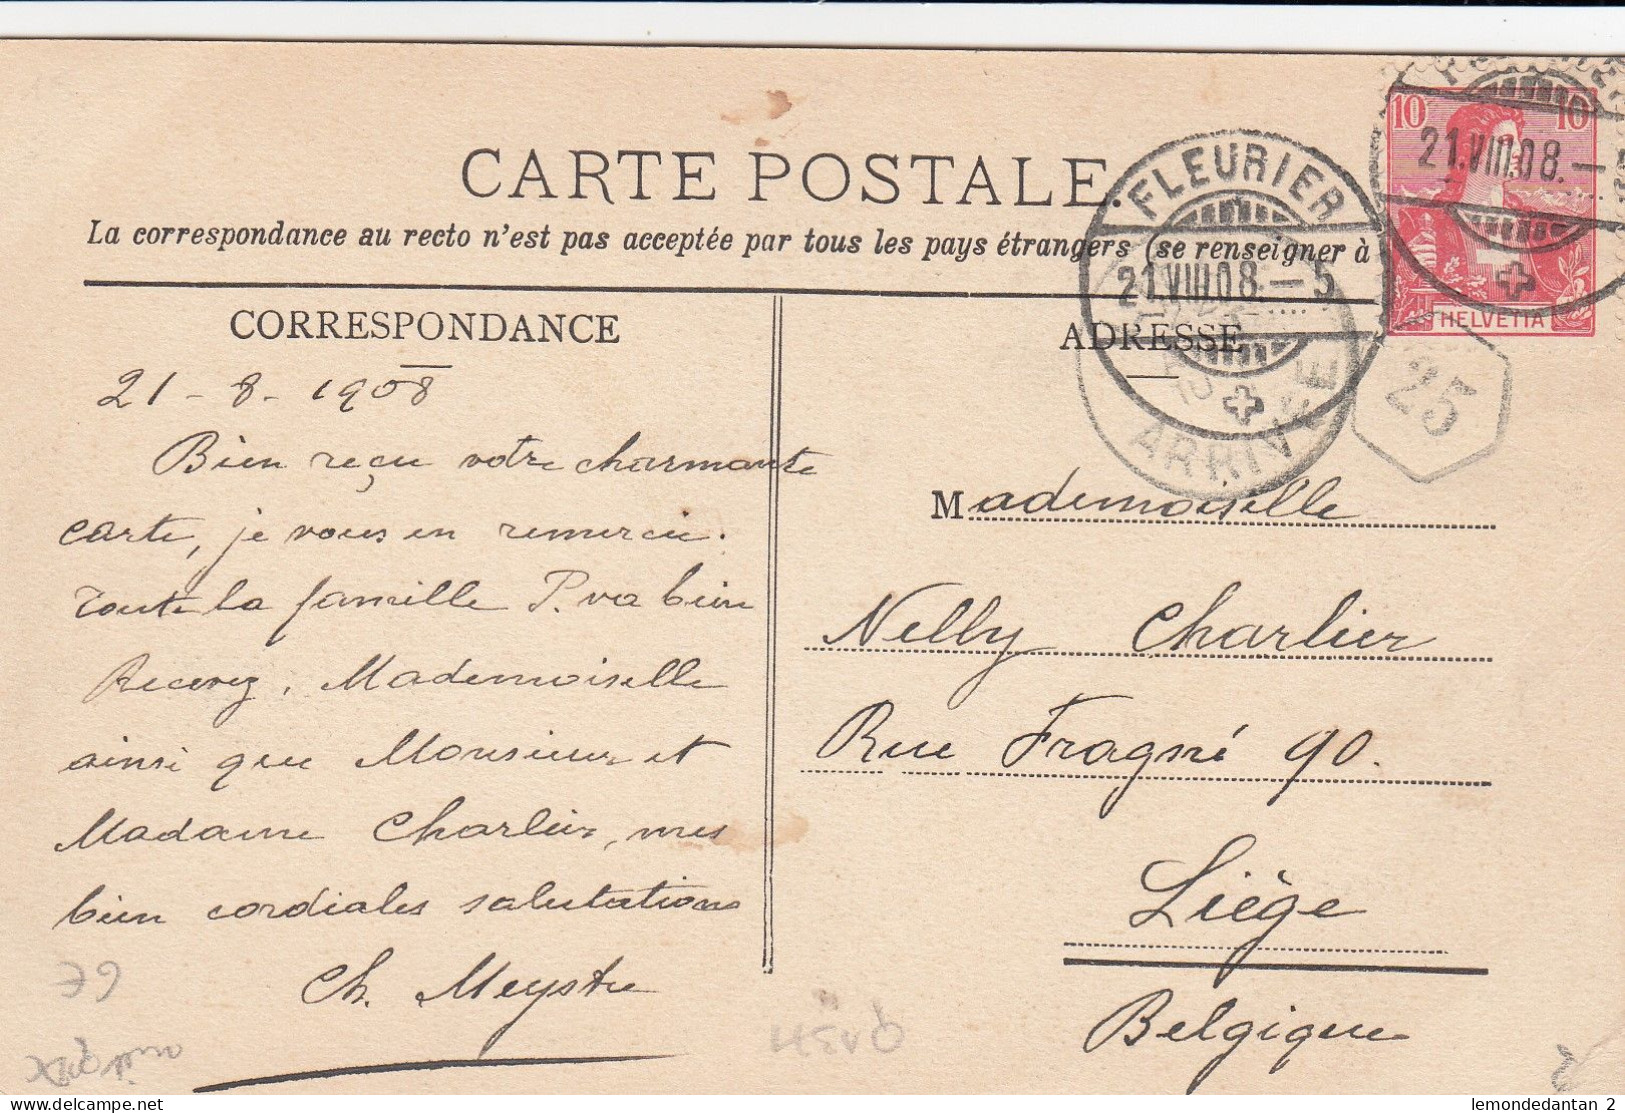 CARTE POSTALE
La correspondance au recto n'est pas acceptée par tous les pays étrangers (se renseigner à
CORRESPONDANCE
21 - 8 - 1908
Bien reçu votre charmante
carte, je vous en remercie.
Toute la famille P. va bien
Recevez, Mademoiselle
ainsi que Monsieur et
Madame Charlier, mes
bien cordiales salutations
Ch. Meystre
ADRESSE
Mademoiselle
Nelly Charlier
Rue Fragné 90.
Liège
Belgique
FLEURIER
21.VIII.08.–5
ARRIVÉE
25
10 10
21.VIII.08.–
HELVETIA
79
lemondedantan 2